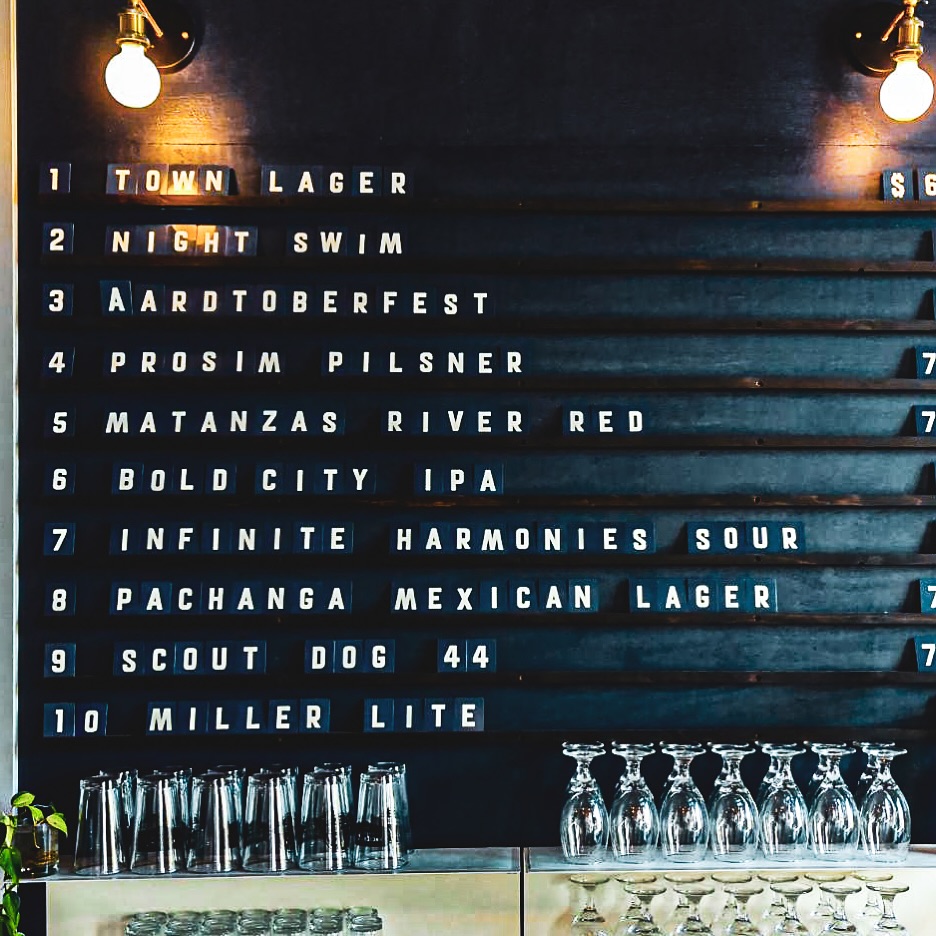 1 TOWN LAGER $6
2 NIGHT SWIM
3 AARDTOBERFEST
4 PROSIM PILSNER 7
5 MATANZAS RIVER RED 7
6 BOLD CITY IPA
7 INFINITE HARMONIES SOUR
8 PACHANGA MEXICAN LAGER 7
9 SCOUT DOG 44 7
10 MILLER LITE